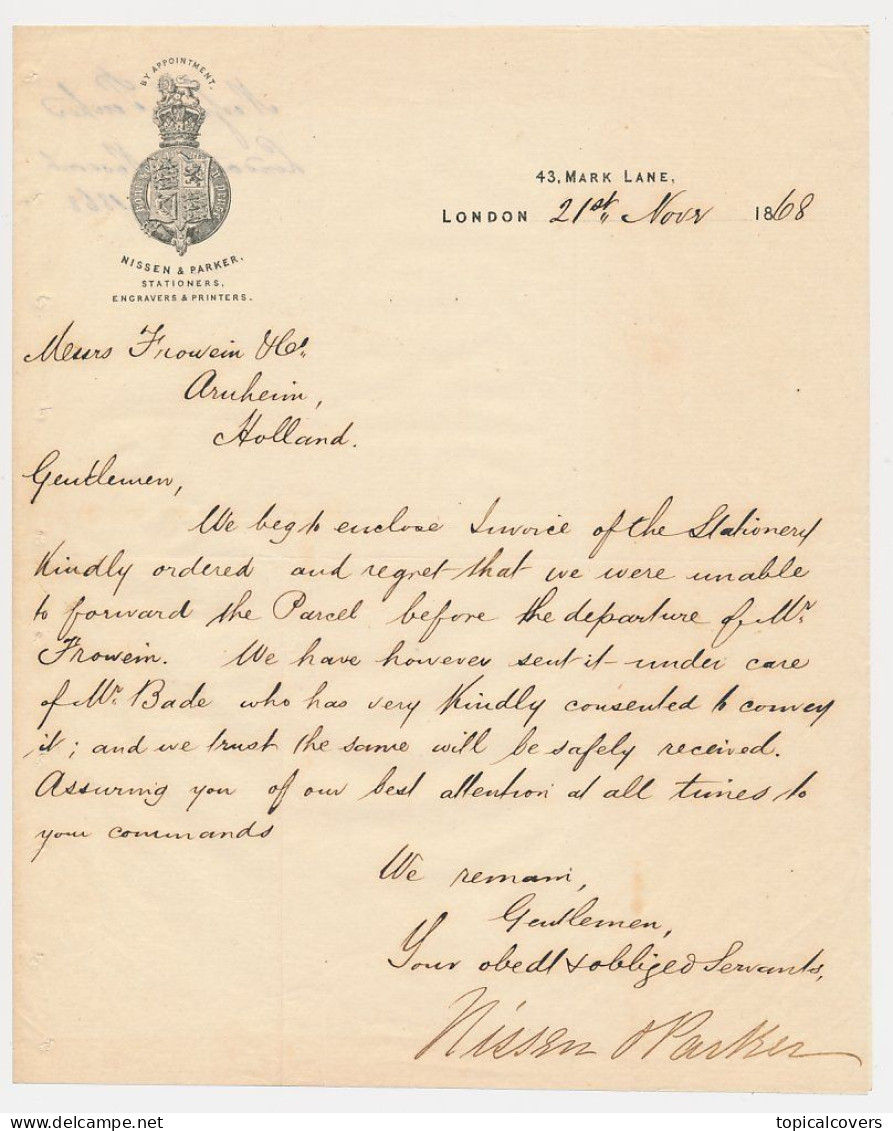 BY APPOINTMENT.
NISSEN & PARKER.
STATIONERS,
ENGRAVERS & PRINTERS.
43, MARK LANE,
LONDON 21st Novr 1868
Messrs Frowein & Co.
Arnheim,
Holland.
Gentlemen,
We beg to enclose Invoice of the Stationery
Kindly ordered and regret that we were unable
to forward the Parcel before the departure of Mr
Frowein. We have however sent it under care
of Mr. Bade who has very Kindly consented to convey
it; and we trust the same will be safely received.
Assuring you of our best attention at all times to
your commands
We remain,
Gentlemen,
Your obedt & obliged Servants,
Nissen & Parker
topicalcovers